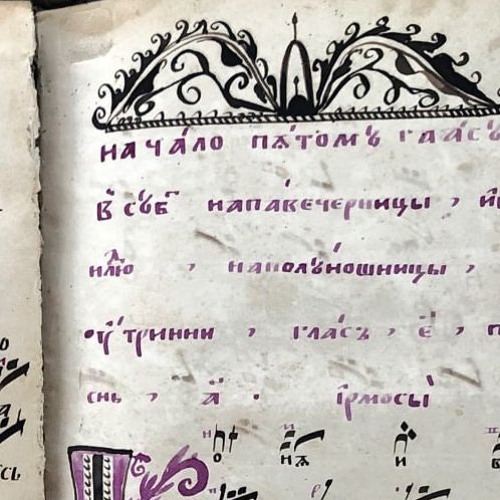 нача́ло пѧ́томꙋ гла́сꙋ
в̾ сꙋб҇ напа́вечерницы , и҆
нⷣлю , наполꙋ́ношницы ,
ѹ҆́тринни , гла́съ , є҃ , п
снь , а҃ . і҆рмосы̀
о нѧ и